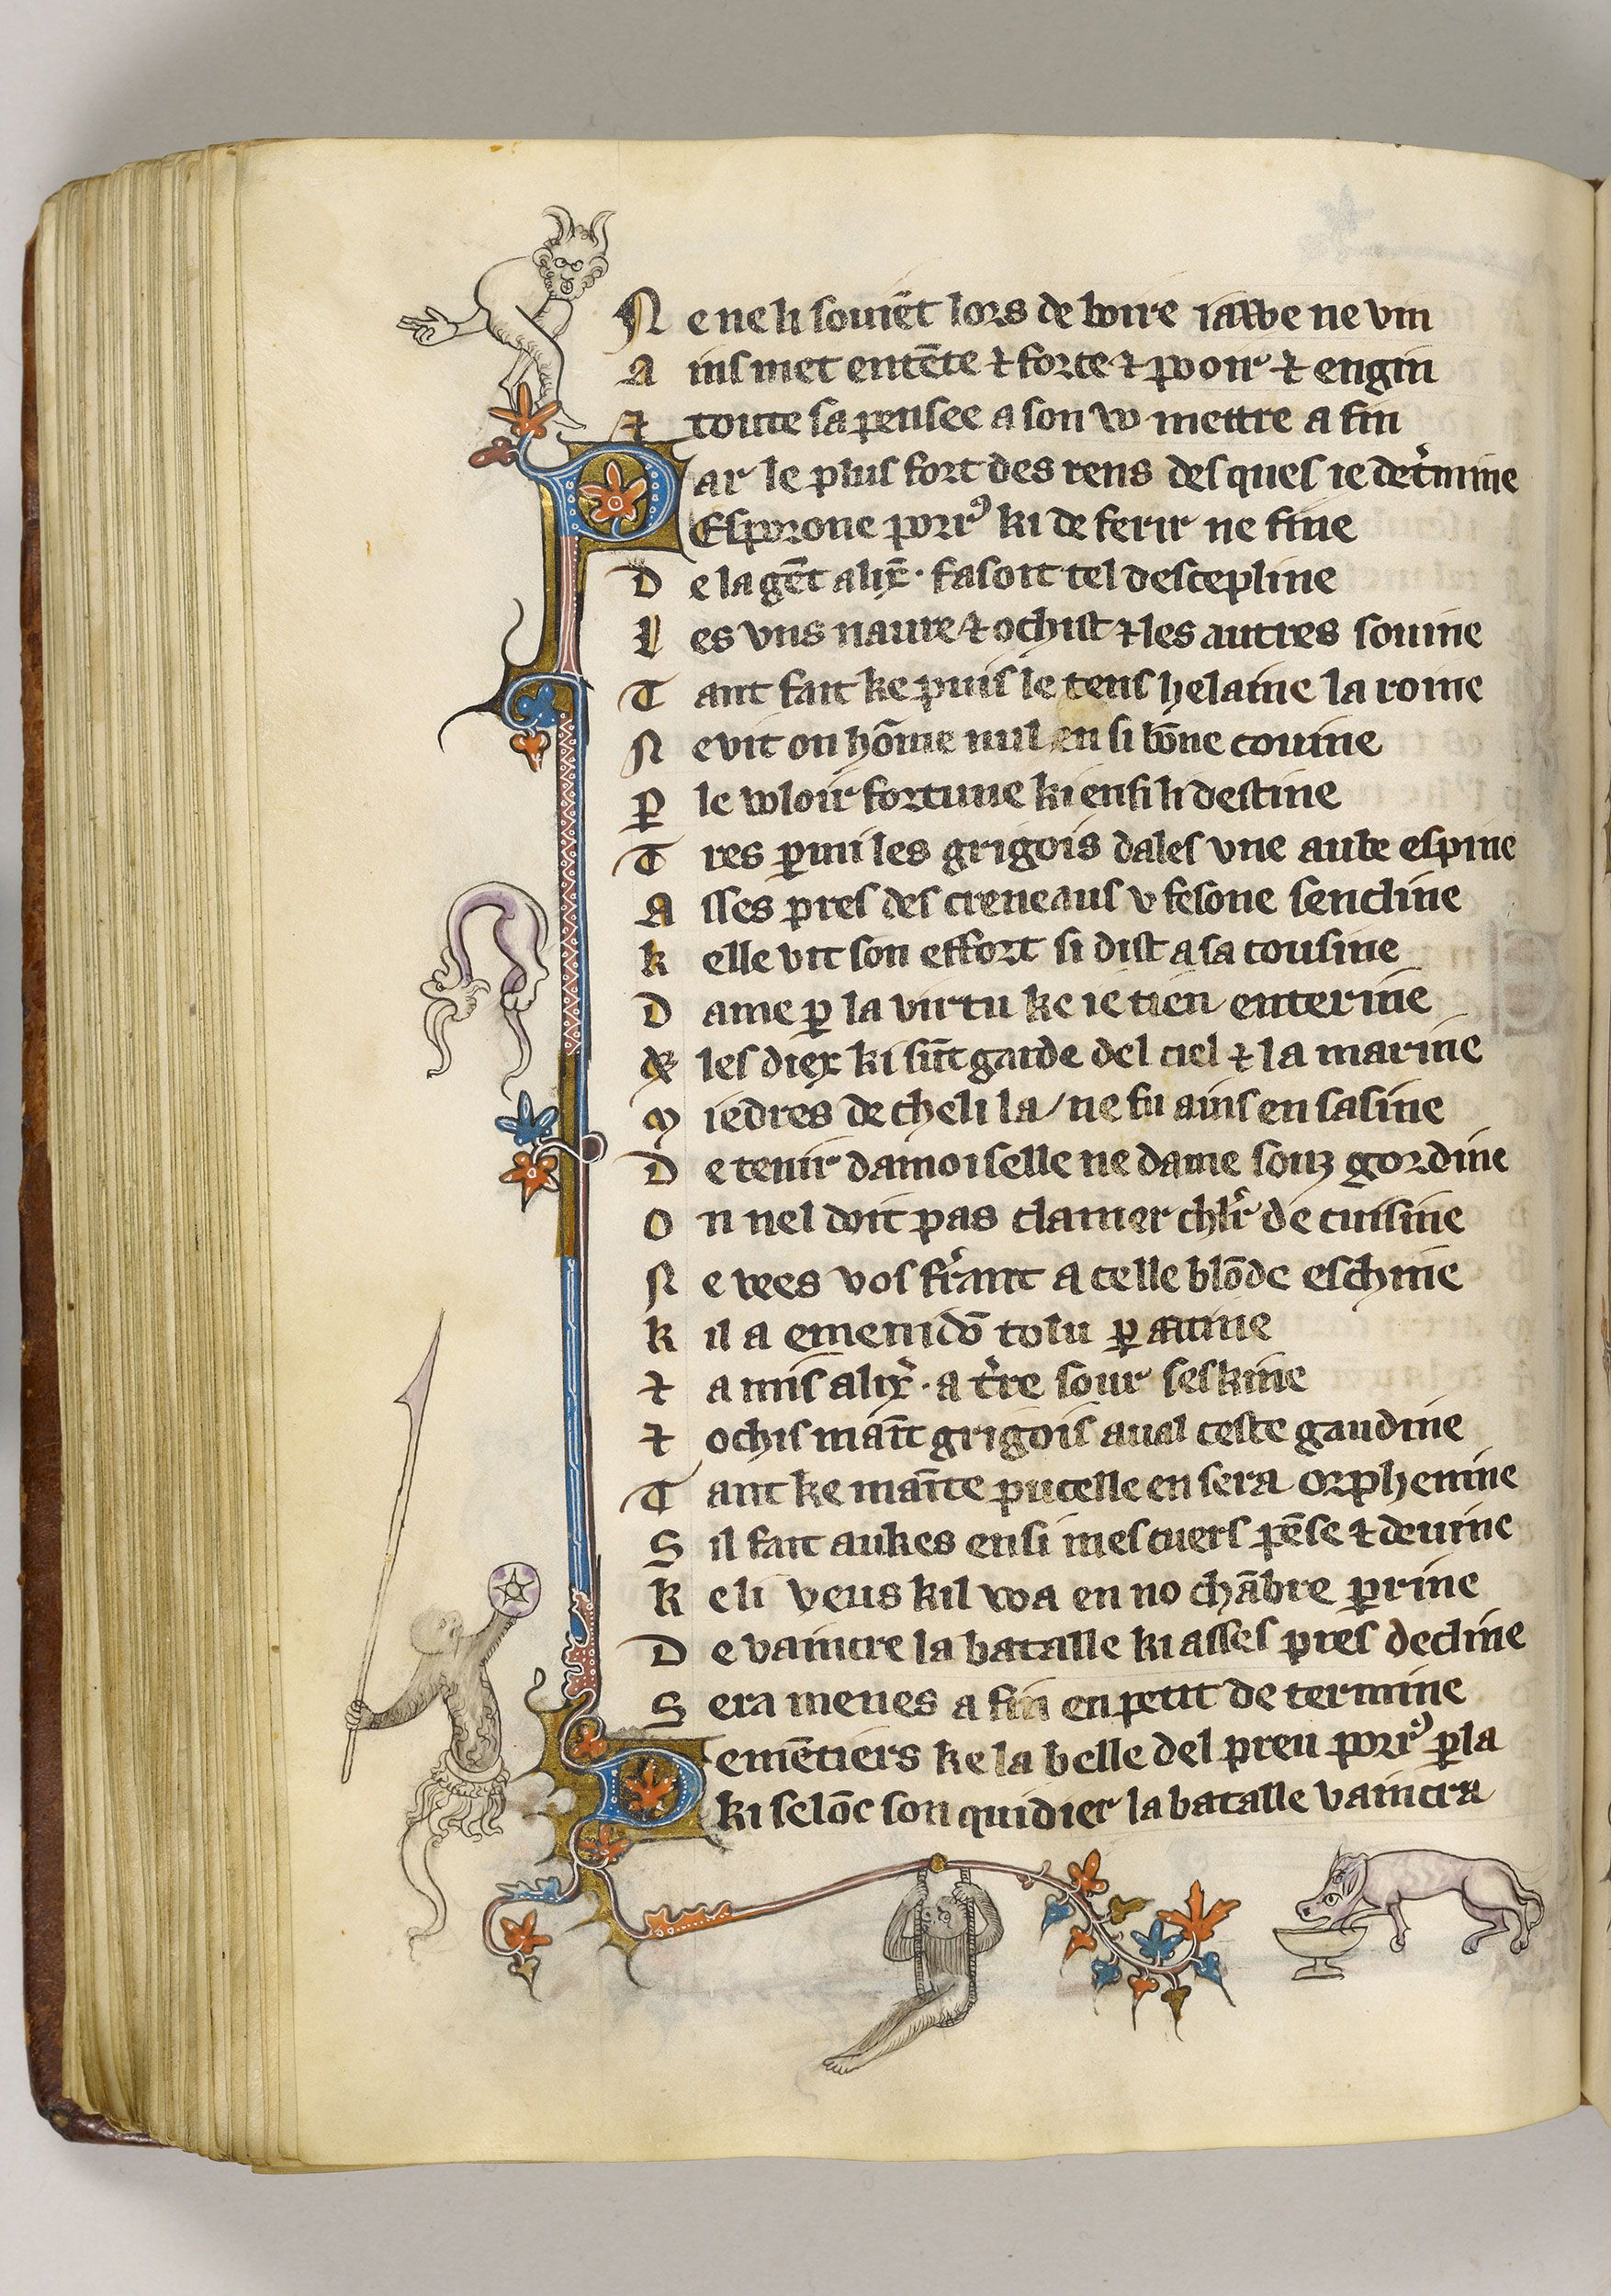 Ne ne li souiēt lors de boire iawe ne vin
Ains met entēte ⁊ force ⁊ pooir ⁊ engin
⁊ toute sa pensee a son vo mettre a fin
Par le plus fort des rens desques ie det'mine
Esporone porr⁹ ki de ferir ne fine
De la gēt alix̄ · fasoit tel descepline
Les vns naure ⁊ ochist ⁊ les autres souine
Tant fait ke puis le tens helaine la roine
Ne vit on hōme nul en si bōne couine
ꝑ le voloir fortune ki ensi li destine
Tres ꝑmi les grigois dales vne aube espine
Asses pres des creneaus v fesone sencline
kelle vit son effort si dist a sa cousine
Dame ꝑ la virtu ke ie tien enterine
& les diex ki sūt garde del ciel ⁊ la marine
Miedres de cheli la / ne fu ains en sasine
De tenir damoiselle ne dame souz gordine
On nel doit pas clamer chl'r de cuisine
Ne vees vos f'rant a celle blōde eschine
kil a emenidō tolu ꝑ aatine
⁊ a mis alix' · a t're sour seskine
⁊ ochis maīt grigois aual ceste gaudine
Tant ke maīte pucelle en sera orphenine
Sil fait aukes ensi mes cuers pēse ⁊ deuine
ke li veus kil voa en no chābre ꝑrine
De vaincre la batalle ki asses pres decline
Sera menes a fin en petit de termine
Demētiers ke la belle del preu porr⁹ ꝑla
ki selōc son quidier la batalle vaincra